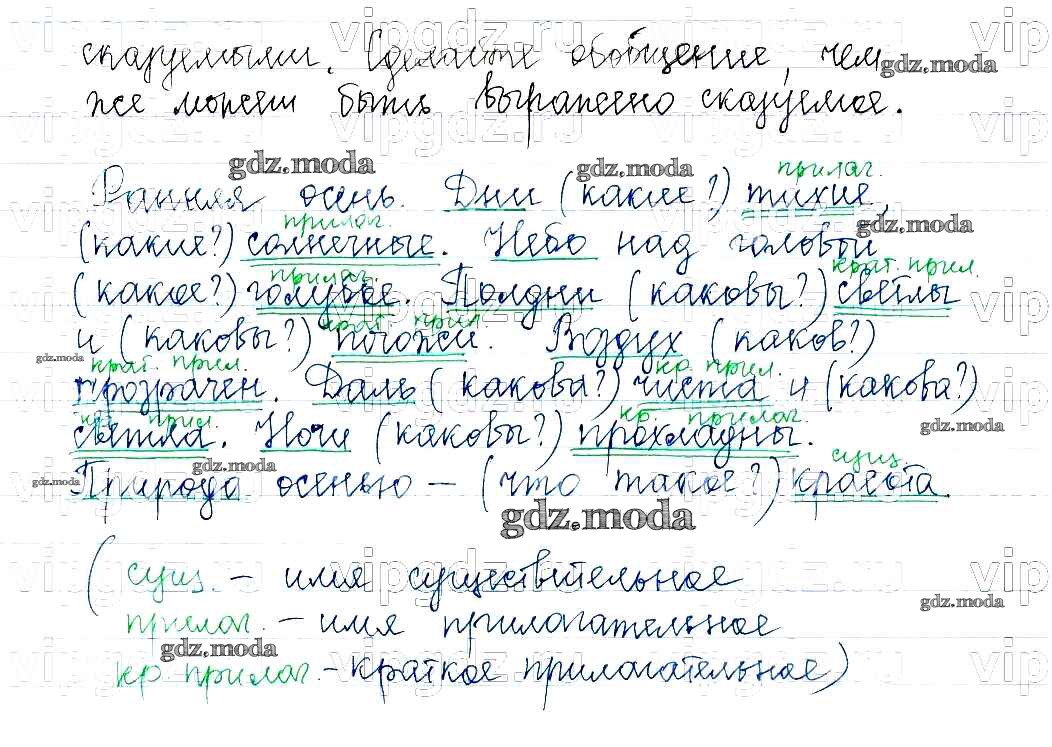 сказуемыми. Сделайте обобщение, чем
же может быть выражено сказуемое.
прилаг.
Ранняя осень. Дни (какие?) тихие,
прилаг.
(какие?) солнечные. Небо над головой
прилаг. крат. прил.
(какое?) голубое. Полдни (каковы?) светлы
крат. прил.
и (каковы?) погожи. Воздух (каков?)
крат. прил. кр. прил.
прозрачен. Даль (какова?) чиста и (какова?)
кр. прил. кр. прилаг.
светла. Ночи (каковы?) прохладны.
сущ.
Природа осенью – (что такое?) красота.
(сущ. – имя существительное
прилаг. – имя прилагательное
кр. прилаг. – краткое прилагательное)
gdz.moda
vipgdz.ru